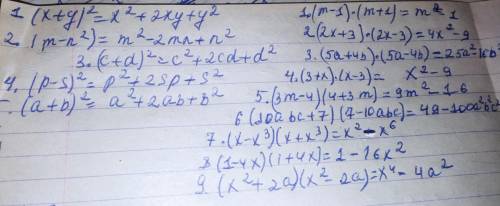 1. (x+y)²=x²+2xy+y²
2. (m-n²)=m²-2mn+n²
3. (c+d)²=c²+2cd+d²
4. (p-s)²=p²+2sp+s²
(a+b)²=a²+2ab+b²
1. (m-1)·(m+1)=m²-1
2(2x+3)·(2x-3)=4x²-9
3. (5a+4b)·(5a-4b)=25a²-16b²
4. (3+x)·(x-3)= x²-9
5. (3m-4)(4+3m)=9m²-16
6(10abc+7)(7-10abc)=49-100a²b²c²
7. (x-x³)(x+x³)=x²-x⁶
8(1-4x)(1+4x)=1-16x²
9. (x²+2a)(x²-2a)=x⁴-4a²